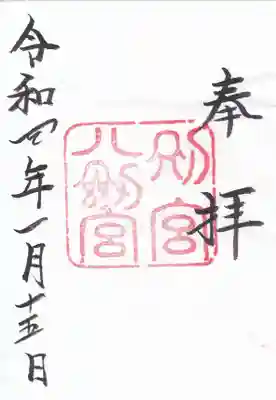 奉拝
別宮
八剣宮
令和四年一月十五日